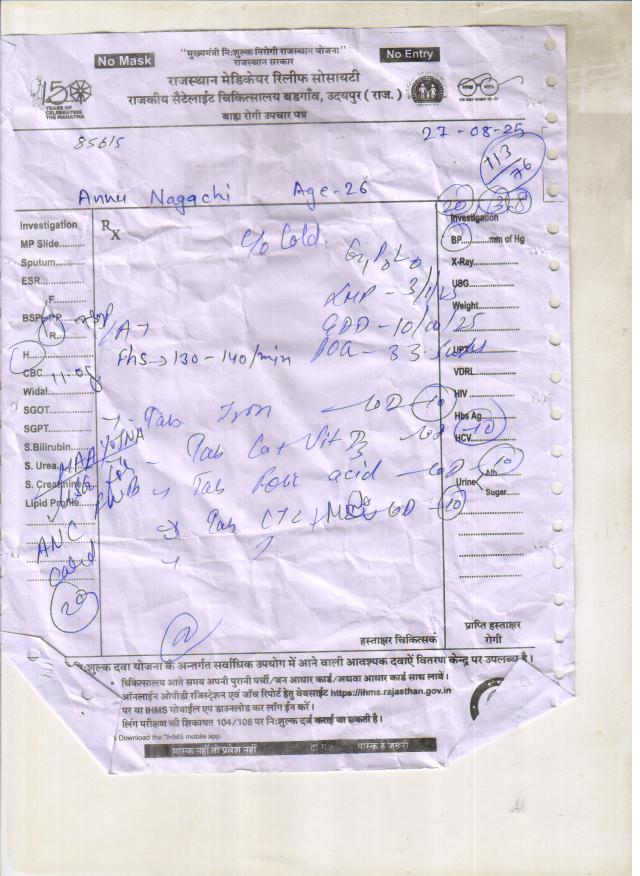 "मुख्यमंत्री निःशुल्क निरोगी राजस्थान योजना"
राजस्थान सरकार
No Mask
No Entry
राजस्थान मेडिकेयर रिलीफ सोसायटी
राजकीय सैटेलाईट चिकित्सालय बडगाँव, उदयपुर (राज.)
बाह्य रोगी उपचार पत्र
150
YEARS OF
CELEBRATING
THE MAHATMA
85615
27-08-25
113
76
Annu Nagachi Age-26
Investigation
MP Slide
Sputum
ESR
F.
BSP PP
R.
H
CBC 11.0g
Widal
SGOT
SGPT
S.Bilirubin
S. Urea
S. Creatinine
Lipid Profile
ANC
20
Rx
c/o Cold.
LMP - 3/1/25
EDD - 10/10/25
P/A →
FHS → 130-140/min POG - 33
Tab Iron OD 10
Tab Ca + Vit D3
Tab Folic acid OD
Tab CTZ OD 10
Investigation
BP mm of Hg
X-Ray
USG
Weight
UPT
VDRL
HIV
Hbs Ag
HCV
Urine Alb
Sugar
10
हस्ताक्षर चिकित्सक
प्राप्ति हस्ताक्षर
रोगी
निःशुल्क दवा योजना के अन्तर्गत सर्वाधिक उपयोग में आने वाली आवश्यक दवाऐं वितरण केन्द्र पर उपलब्ध है।
• चिकित्सालय आते समय अपनी पुरानी पर्ची/जन आधार कार्ड/अथवा आधार कार्ड साथ लावें।
ऑनलाईन ओपीडी रजिस्ट्रेशन एवं जॉच रिपोर्ट हेतु वेबसाईट https://ihms.rajasthan.gov.in
पर या IHMS मोबाईल एप डाउनलोड कर लॉग ईन करें।
लिंग परीक्षण की शिकायत 104/108 पर निःशुल्क दर्ज कराई जा सकती है।
Download the "IHMS mobile app.
मास्क नहीं तो प्रवेश नहीं
मास्क है जरूरी